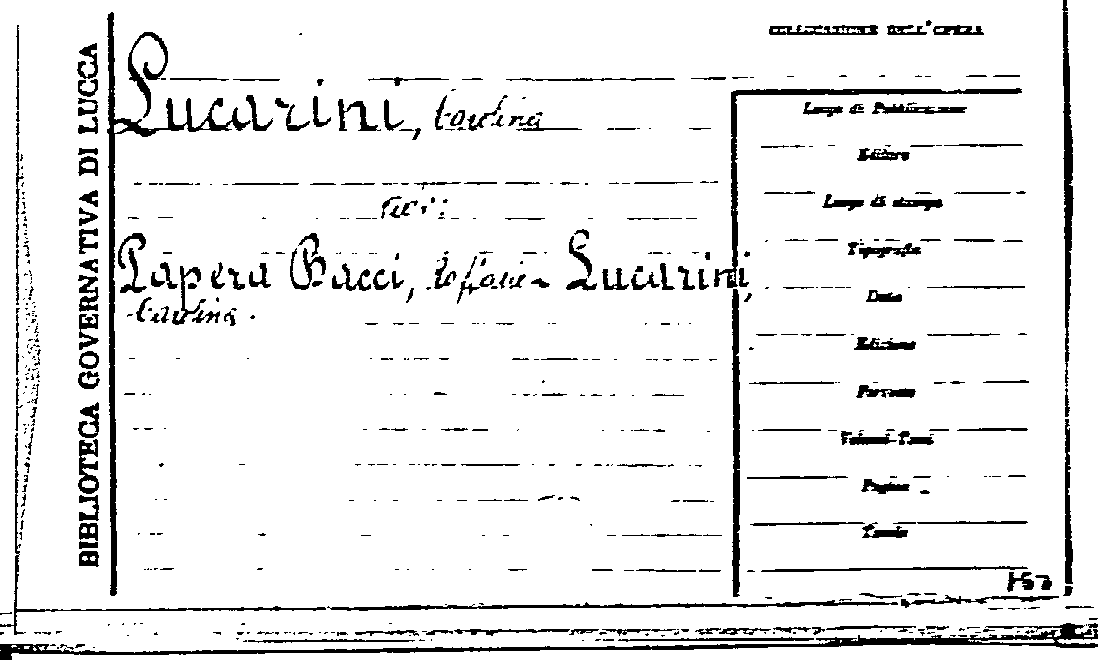 BIBLIOTECA GOVERNATIVA DI LUCCA
COLLOCAZIONE DELL'OPERA
Lucarini, Carolina
Papera Bacci, Lucarini,
Carolina.
Luogo di Pubblicazione
Editore
Luogo di stampa
Tipografia
Data
Edizione
Formato
Volumi-Tomi
Pagine
Tavole